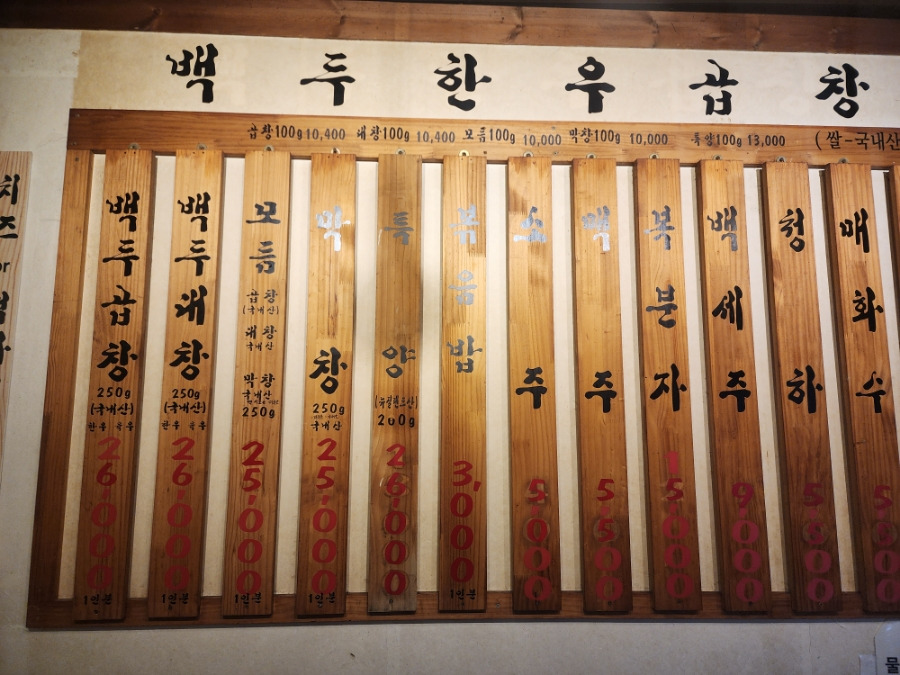 백두한우곱창
곱창100g 10,400 대창100g 10,400 모듬100g 10,000 막창100g 10,000 특양100g 13,000 (쌀-국내산
백두곱창
250g
(국내산)
한우
26,000
1인분
백두대창
250g
(국내산)
한우
26,000
1인분
모듬
곱창
(국내산)
대창
국내산
막창
국내산
250g
25,000
1인분
막창
250g
국내산
25,000
1인분
특양
(뉴질랜드산)
200g
26,000
1인분
볶음밥
3,000
1인분
소주
5,000
맥주
5,500
복분자
15,000
백세주
9,000
청하
5,500
매화수
5,500
치즈
or
물